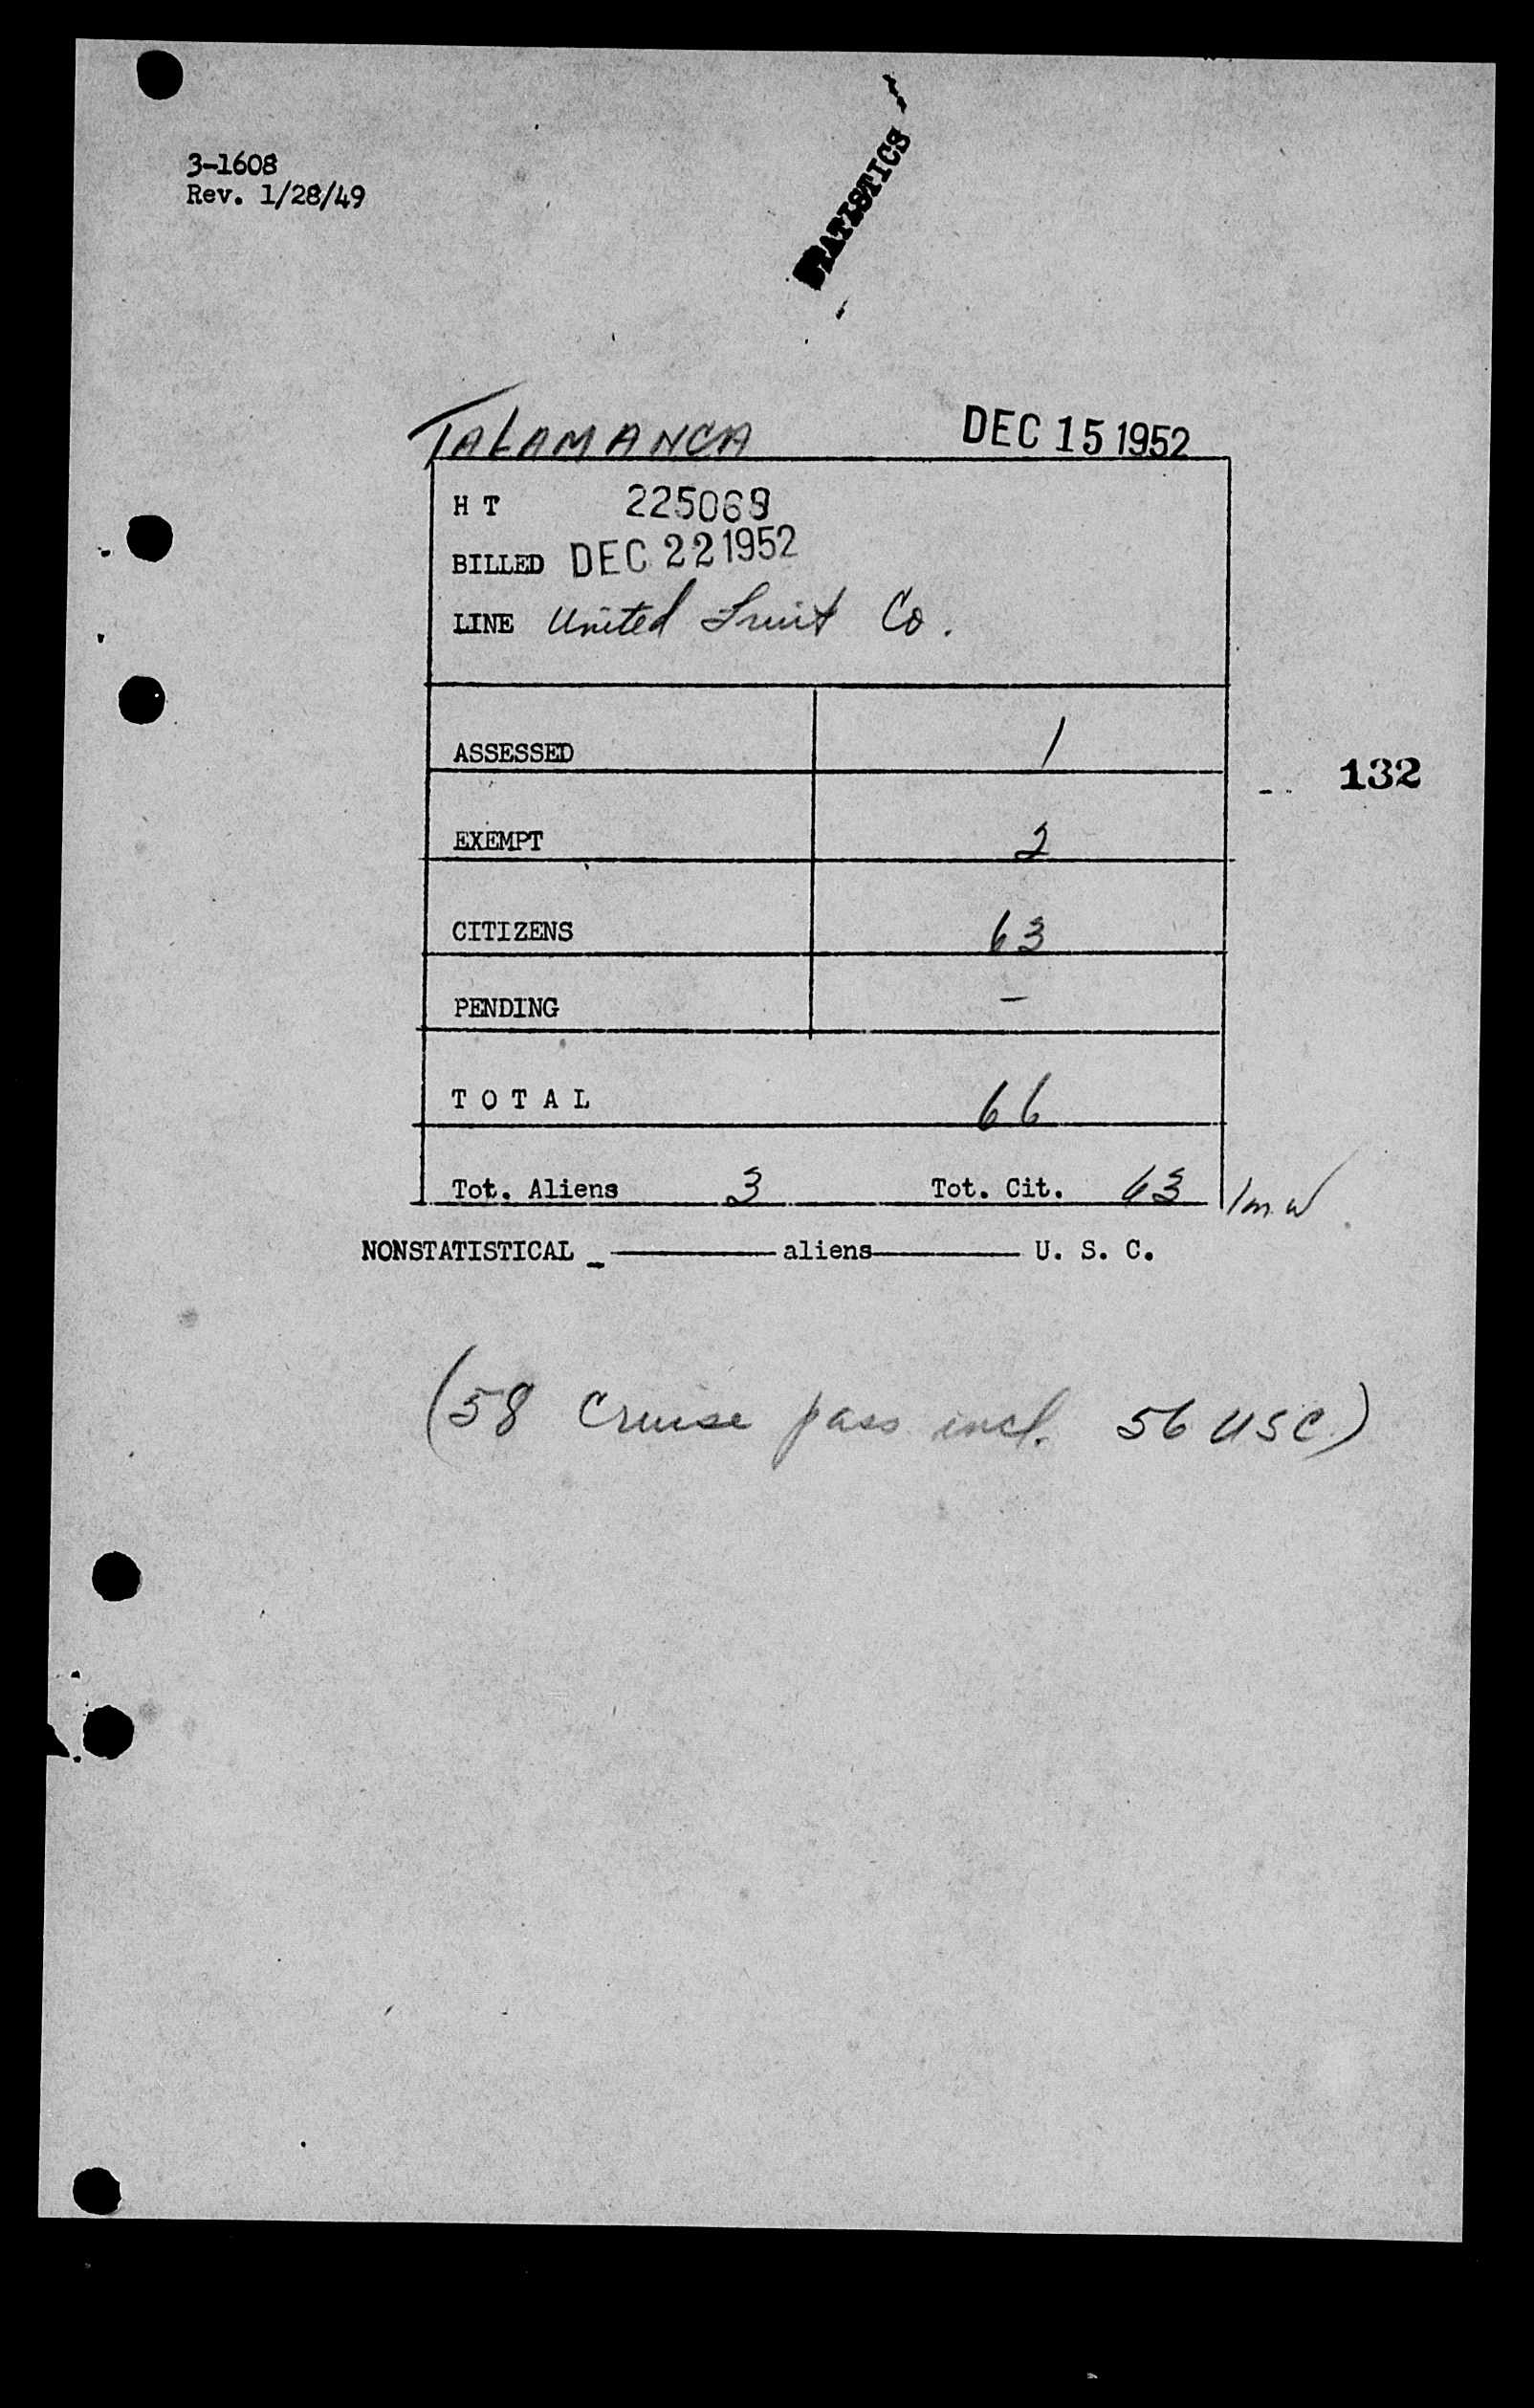 3-1608
Rev. 1/28/49
STATISTICS
TALAMANCA DEC 15 1952
H T 225069
BILLED DEC 22 1952
LINE United Fruit Co.
ASSESSED 1
132
EXEMPT 2
CITIZENS 63
PENDING -
TOTAL 66
Tot. Aliens 3 Tot. Cit. 63
NONSTATISTICAL _ aliens U. S. C.
(58 Cruise pass incl. 56 USC)